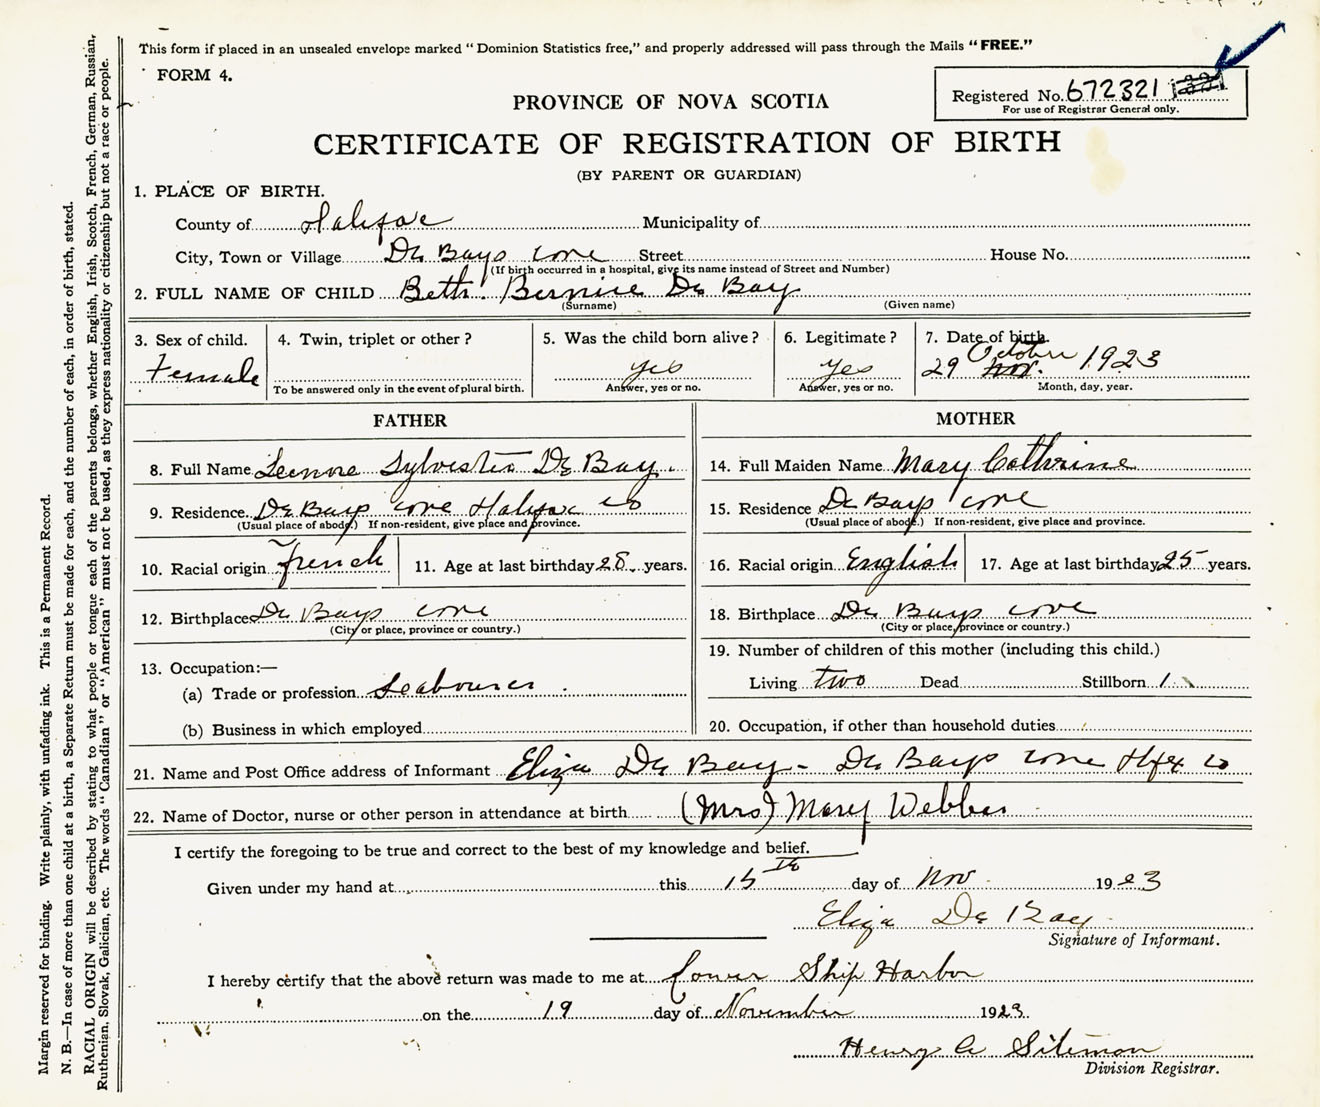 This form if placed in an unsealed envelope marked "Dominion Statistics free," and properly addressed will pass through the Mails "FREE."
FORM 4.
Registered No. 672321
For use of Registrar General only.
PROVINCE OF NOVA SCOTIA
CERTIFICATE OF REGISTRATION OF BIRTH
(BY PARENT OR GUARDIAN)
1. PLACE OF BIRTH.
County of Halifax Municipality of
City, Town or Village De Bays cove Street House No.
(If birth occurred in a hospital, give its name instead of Street and Number)
2. FULL NAME OF CHILD Beth Bernice De Bay
(Surname) (Given name)
3. Sex of child. Female
4. Twin, triplet or other?
To be answered only in the event of plural birth.
5. Was the child born alive? yes
Answer, yes or no.
6. Legitimate? yes
Answer, yes or no.
7. Date of birth.
29 October nov. 1923
Month, day, year.
FATHER
8. Full Name Sylvester De Bay
9. Residence De Bays cove Halifax co
(Usual place of abode.) If non-resident, give place and province.
10. Racial origin French 11. Age at last birthday 28 years.
12. Birthplace De Bays cove
(City or place, province or country.)
13. Occupation:—
(a) Trade or profession Leabourer
(b) Business in which employed
MOTHER
14. Full Maiden Name Mary Cathrine
15. Residence De Bays cove
(Usual place of abode.) If non-resident, give place and province.
16. Racial origin English 17. Age at last birthday 25 years.
18. Birthplace De Bays cove
(City or place, province or country.)
19. Number of children of this mother (including this child.)
Living two Dead Stillborn 1
20. Occupation, if other than household duties
21. Name and Post Office address of Informant Eliza De Bay - De Bays cove Hfx co
22. Name of Doctor, nurse or other person in attendance at birth (Mrs) Mary Webber
I certify the foregoing to be true and correct to the best of my knowledge and belief.
Given under my hand at this 15th day of Nov 1923
Eliza De Bay
Signature of Informant.
I hereby certify that the above return was made to me at Lower Ship Harbor
on the 19 day of November 1923
Henry A Siteman
Division Registrar.
Margin reserved for binding. Write plainly, with unfading ink. This is a Permanent Record.
N. B.—In case of more than one child at a birth, a Separate Return must be made for each, and the number of each, in order of birth, stated.
RACIAL ORIGIN will be described by stating to what people or tongue each of the parents belongs, whether English, Irish, Scotch, French, German, Russian,
Ruthenian, Slovak, Galician, etc. The words "Canadian" or "American" must not be used, as they express nationality or citizenship but not a race or people.